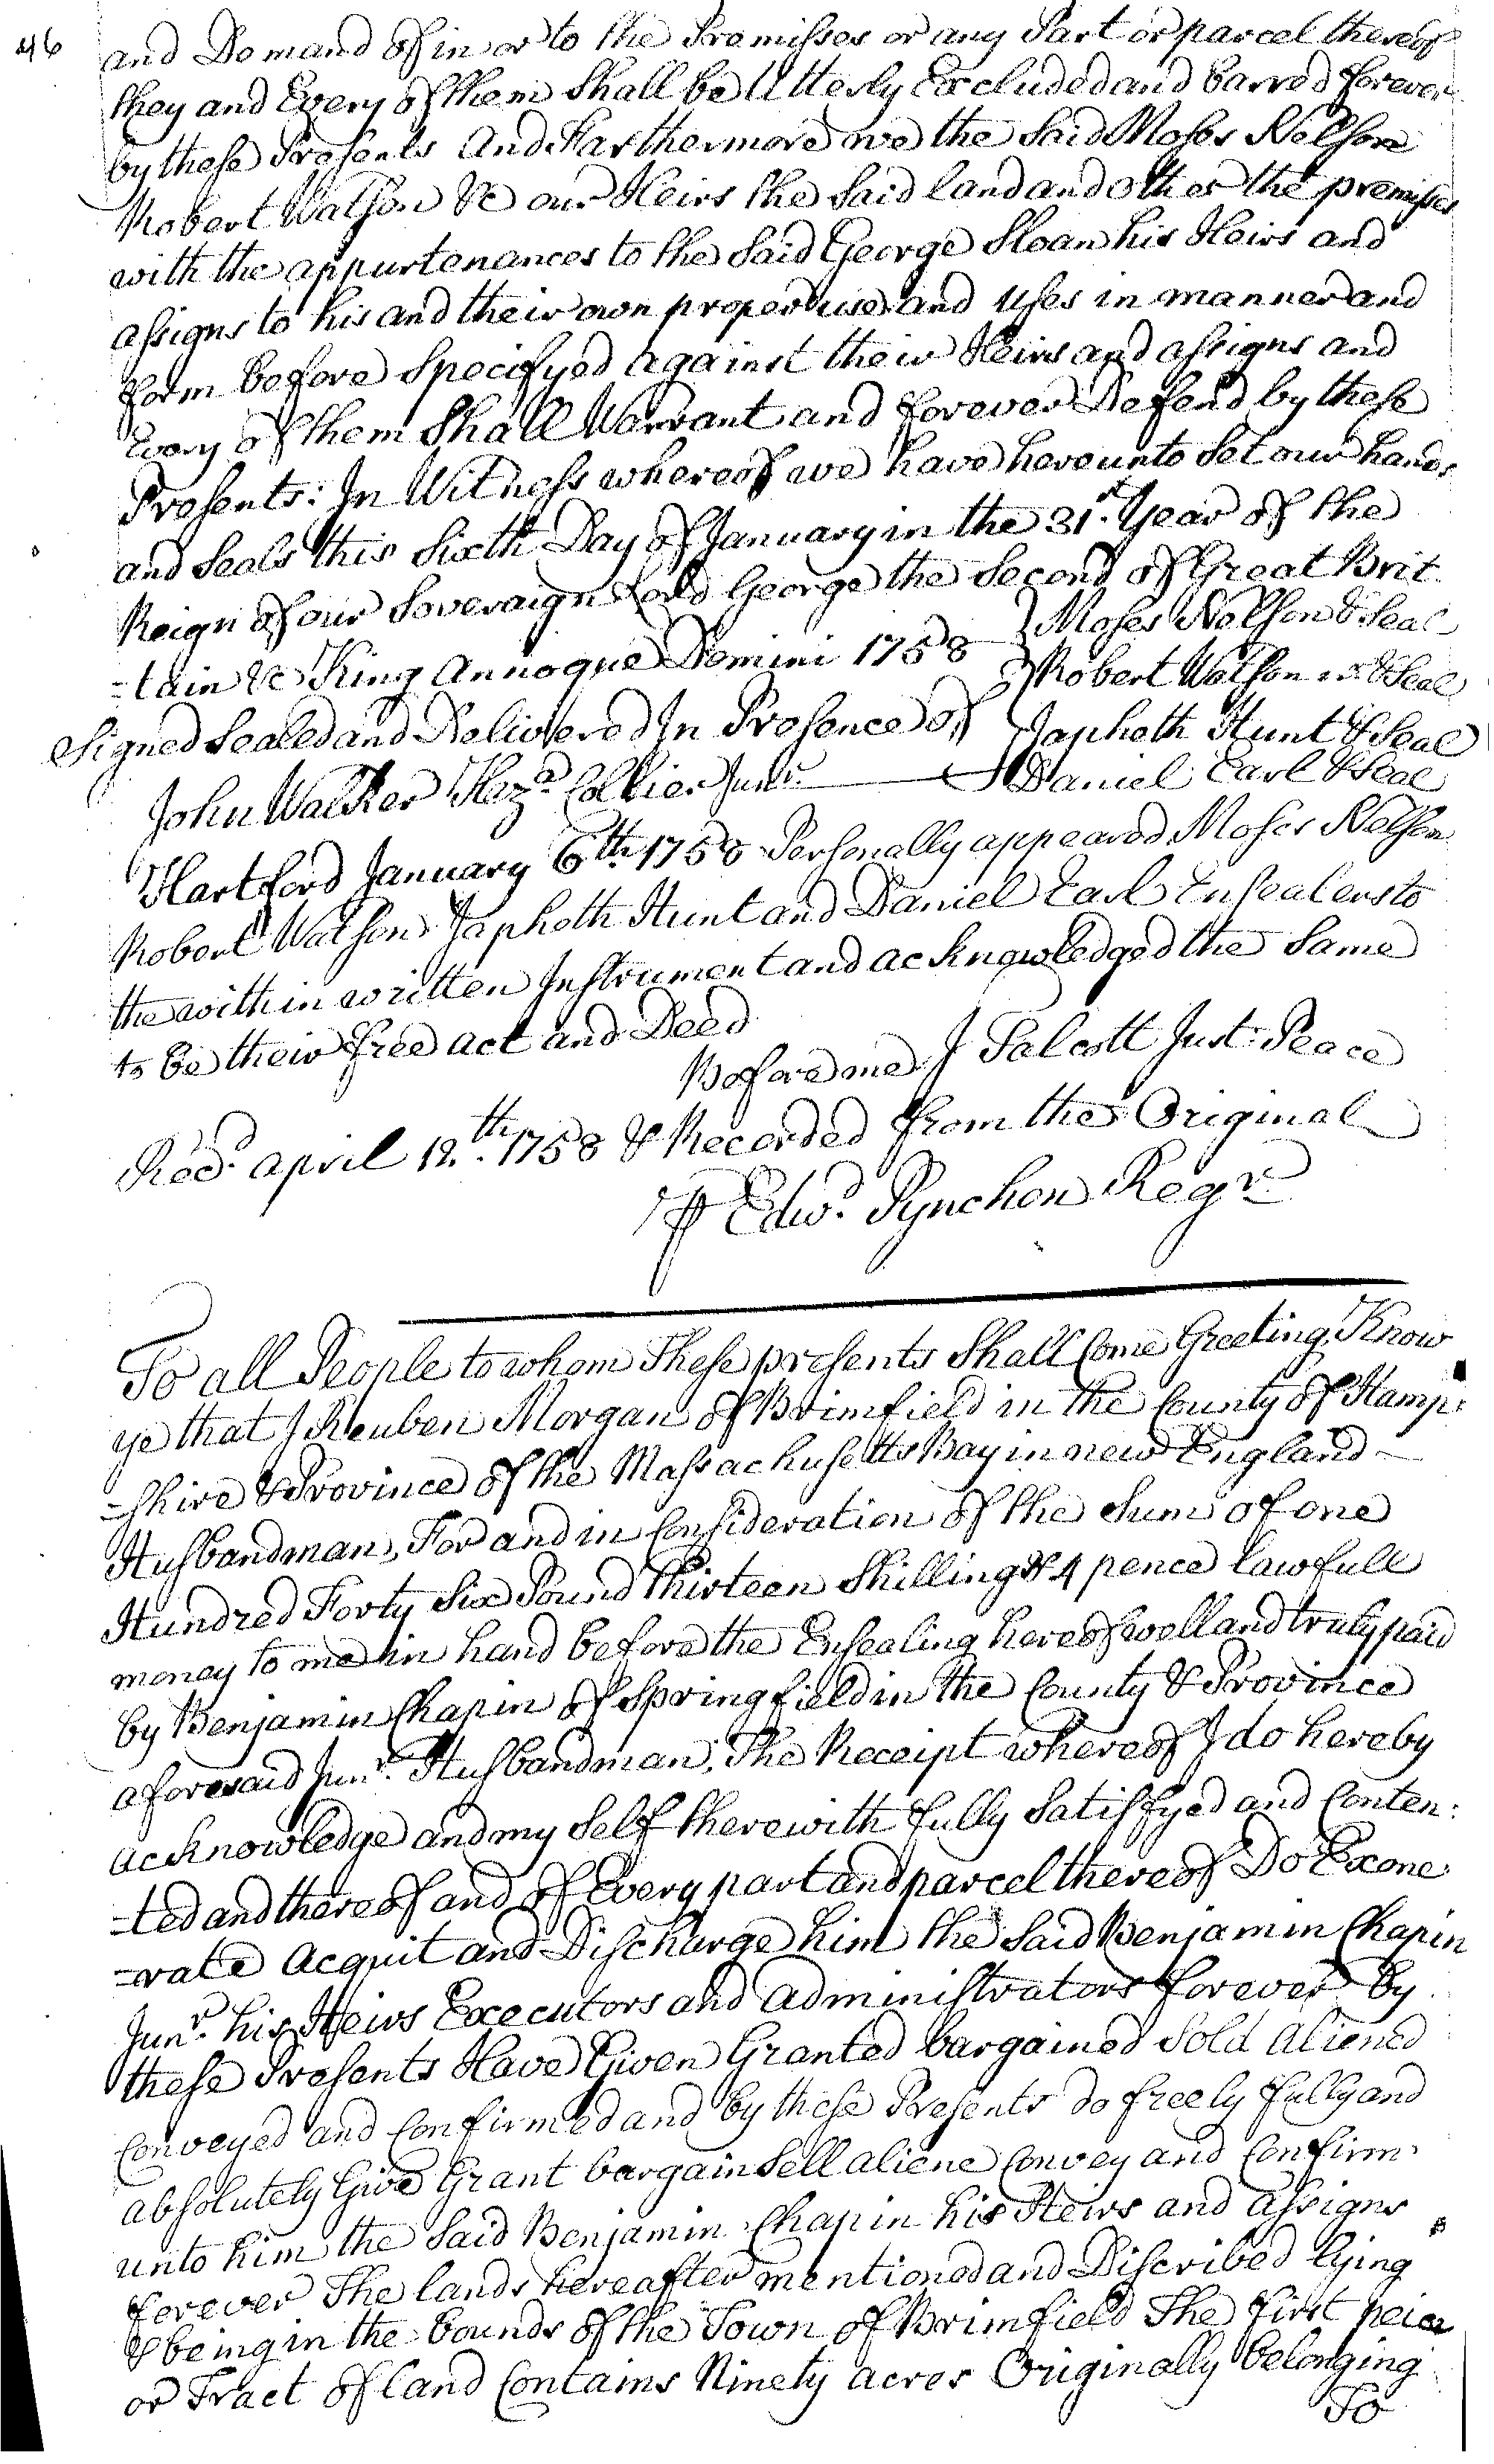 46
and Demand of in or to the Premisses or any Part or parcel thereof
they and Every of them Shall be Utterly Excluded and barred forever
by these Presents And Farthermore we the Said Moses Nelson
Robert Watson &c our Heirs the Said land and other the premises
with the appurtenances to the Said George Sloan his Heirs and
assigns to his and their own proper use and uses in manner and
form before Specifyed against their Heirs and assigns and
Every of them Shall Warrant and forever Defend by these
Presents: In Witness whereof we have hereunto Set our hands
and Seals this Sixth Day of January in the 31st. Year of the
Reign of our Soveraign Lord George the Second of Great Brit
-tain &c King Annoque Domini 1758 Moses Nelson & Seal
Robert Watson & Seal
Signed Sealed and Delivered In Presence of Japheth Hunt & Seal
John Walker Heza. Collier Junr. Daniel Earl & Seal
Hartford January 6th. 1758 Personally appeared Moses Nelson
Robert Watson Japheth Hunt and Daniel Earl Ensealers to
the within written Instrument and acknowledged the Same
to be their free act and Deed
Before me J Talcott Just: Peace
Recd. april 12th. 1758 & Recorded from the Original
⅌ Edwd. Pynchon Regr.
To all People to whom These presents Shall Come Greeting, Know
ye that I Reuben Morgan of Brimfield in the County of Hamp:
-shire & Province of the Massachusetts Bay in new England
Husbandman, For and in Consideration of the Sum of one
Hundred Forty Six Pound Thirteen Shillings & 4 pence lawfull
money to me in hand before the Ensealing hereof well and truly paid
by Benjamin Chapin of Springfield in the County & Province
aforesaid Junr. Husbandman, The Receipt whereof I do hereby
acknowledge and my Self therewith fully Satisfyed and Conten:
-ted and thereof and of Every part and parcel thereof Do Exone:
-rate acquit and Discharge him the Said Benjamin Chapin
Junr. his Heirs Executors and administrators forever by
these Presents Have Given Granted bargained Sold aliened
Conveyed and Confirmed and by these Presents do freely fully and
absolutely Give Grant bargain Sell aliene Convey and Confirm
unto him the Said Benjamin Chapin his Heirs and assigns
forever The lands hereafter mentioned and Discribed lying
& being in the bounds of the Town of Brimfield The first peice
or Tract of land Contains Ninety acres Originally belonging
To